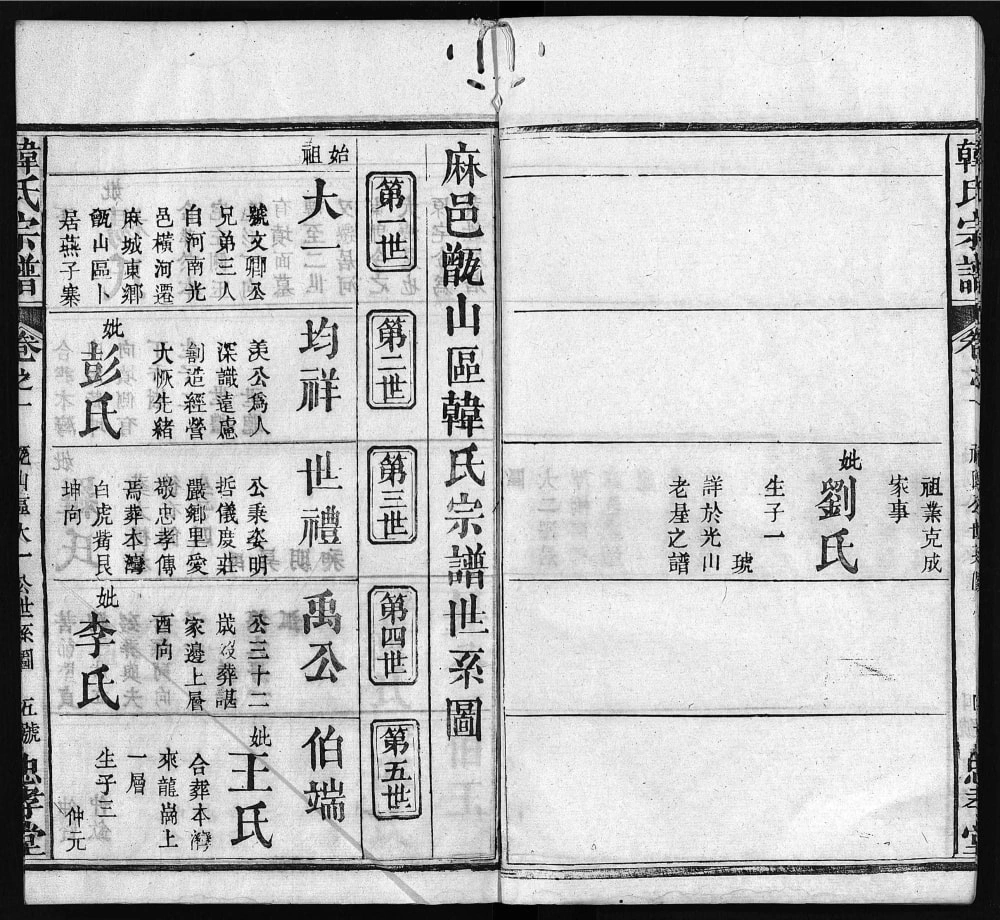 韓氏宗譜
祖業克成
家事
妣
劉氏
生子一
琥
詳於光山
老屋之譜
麻邑甑山區韓氏宗譜世系圖
第一世
第二世
第三世
第四世
第五世
始
祖
大一
號文卿公
兄弟三人
自河南光
邑橫河遷
麻城東鄉
甑山區卜
居燕子寨
均祥
美公爲人
深識遠慮
創造經營
大恢先緒
妣
彭氏
世禮
公秉姿明
哲儀度莊
嚴鄉里愛
敬忠孝傳
焉葬本灣
白虎觜艮
坤向
禹公
公三十二
歲沒葬諶
家邊上層
酉向
妣
李氏
伯端
妣
王氏
合葬本灣
來龍崗上
一層
生子三
仲元
韓氏宗譜
卷之一
甑山區大一公世系圖
伍號
忠孝堂